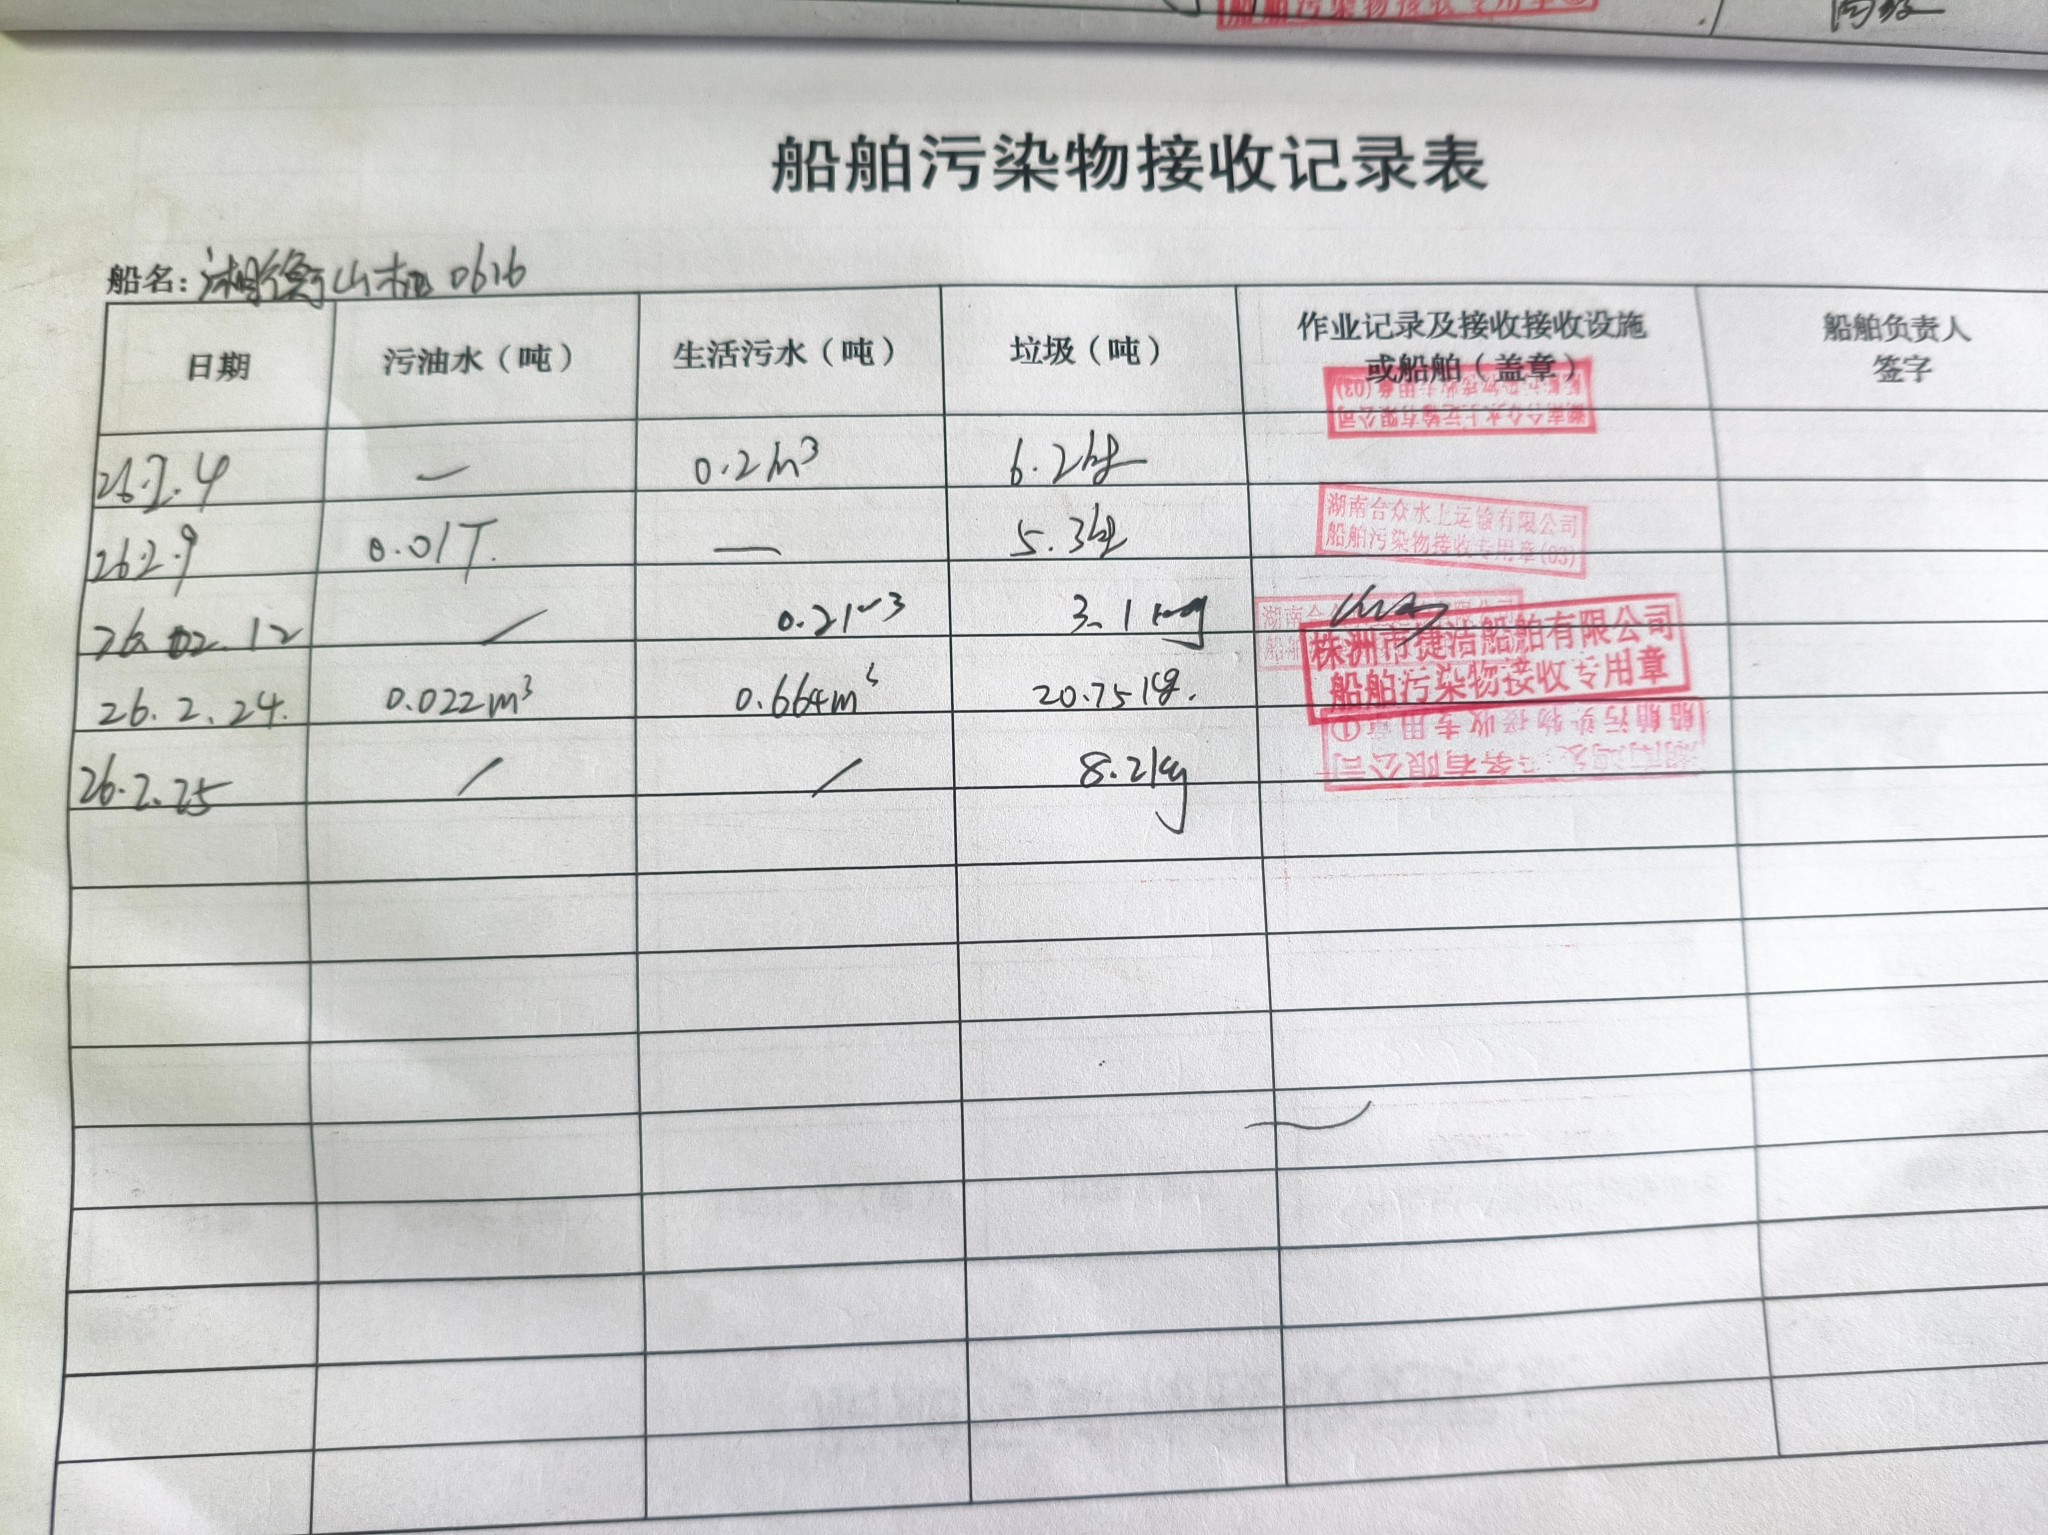 船舶污染物接收专用章
船舶污染物接收记录表
船名: 湘衡山机0616
日期 污油水(吨) 生活污水(吨) 垃圾(吨) 作业记录及接收接收设施或船舶(盖章) 船舶负责人签字
湖南合众水上运输有限公司
船舶污染物接收专用章(03)
26.2.4 — 0.2m³ 6.2kg
26.2.9 0.01T. — 5.3kg
湖南合众水上运输有限公司
船舶污染物接收专用章(03)
26.02.12 / 0.21m³ 3.1kg
湖南合
船舶
株洲市捷洁船舶有限公司
船舶污染物接收专用章
26.2.24. 0.022m³ 0.664m³ 20.75kg.
26.2.25 / / 8.2kg
船舶污染物接收专用章①
务有限公司